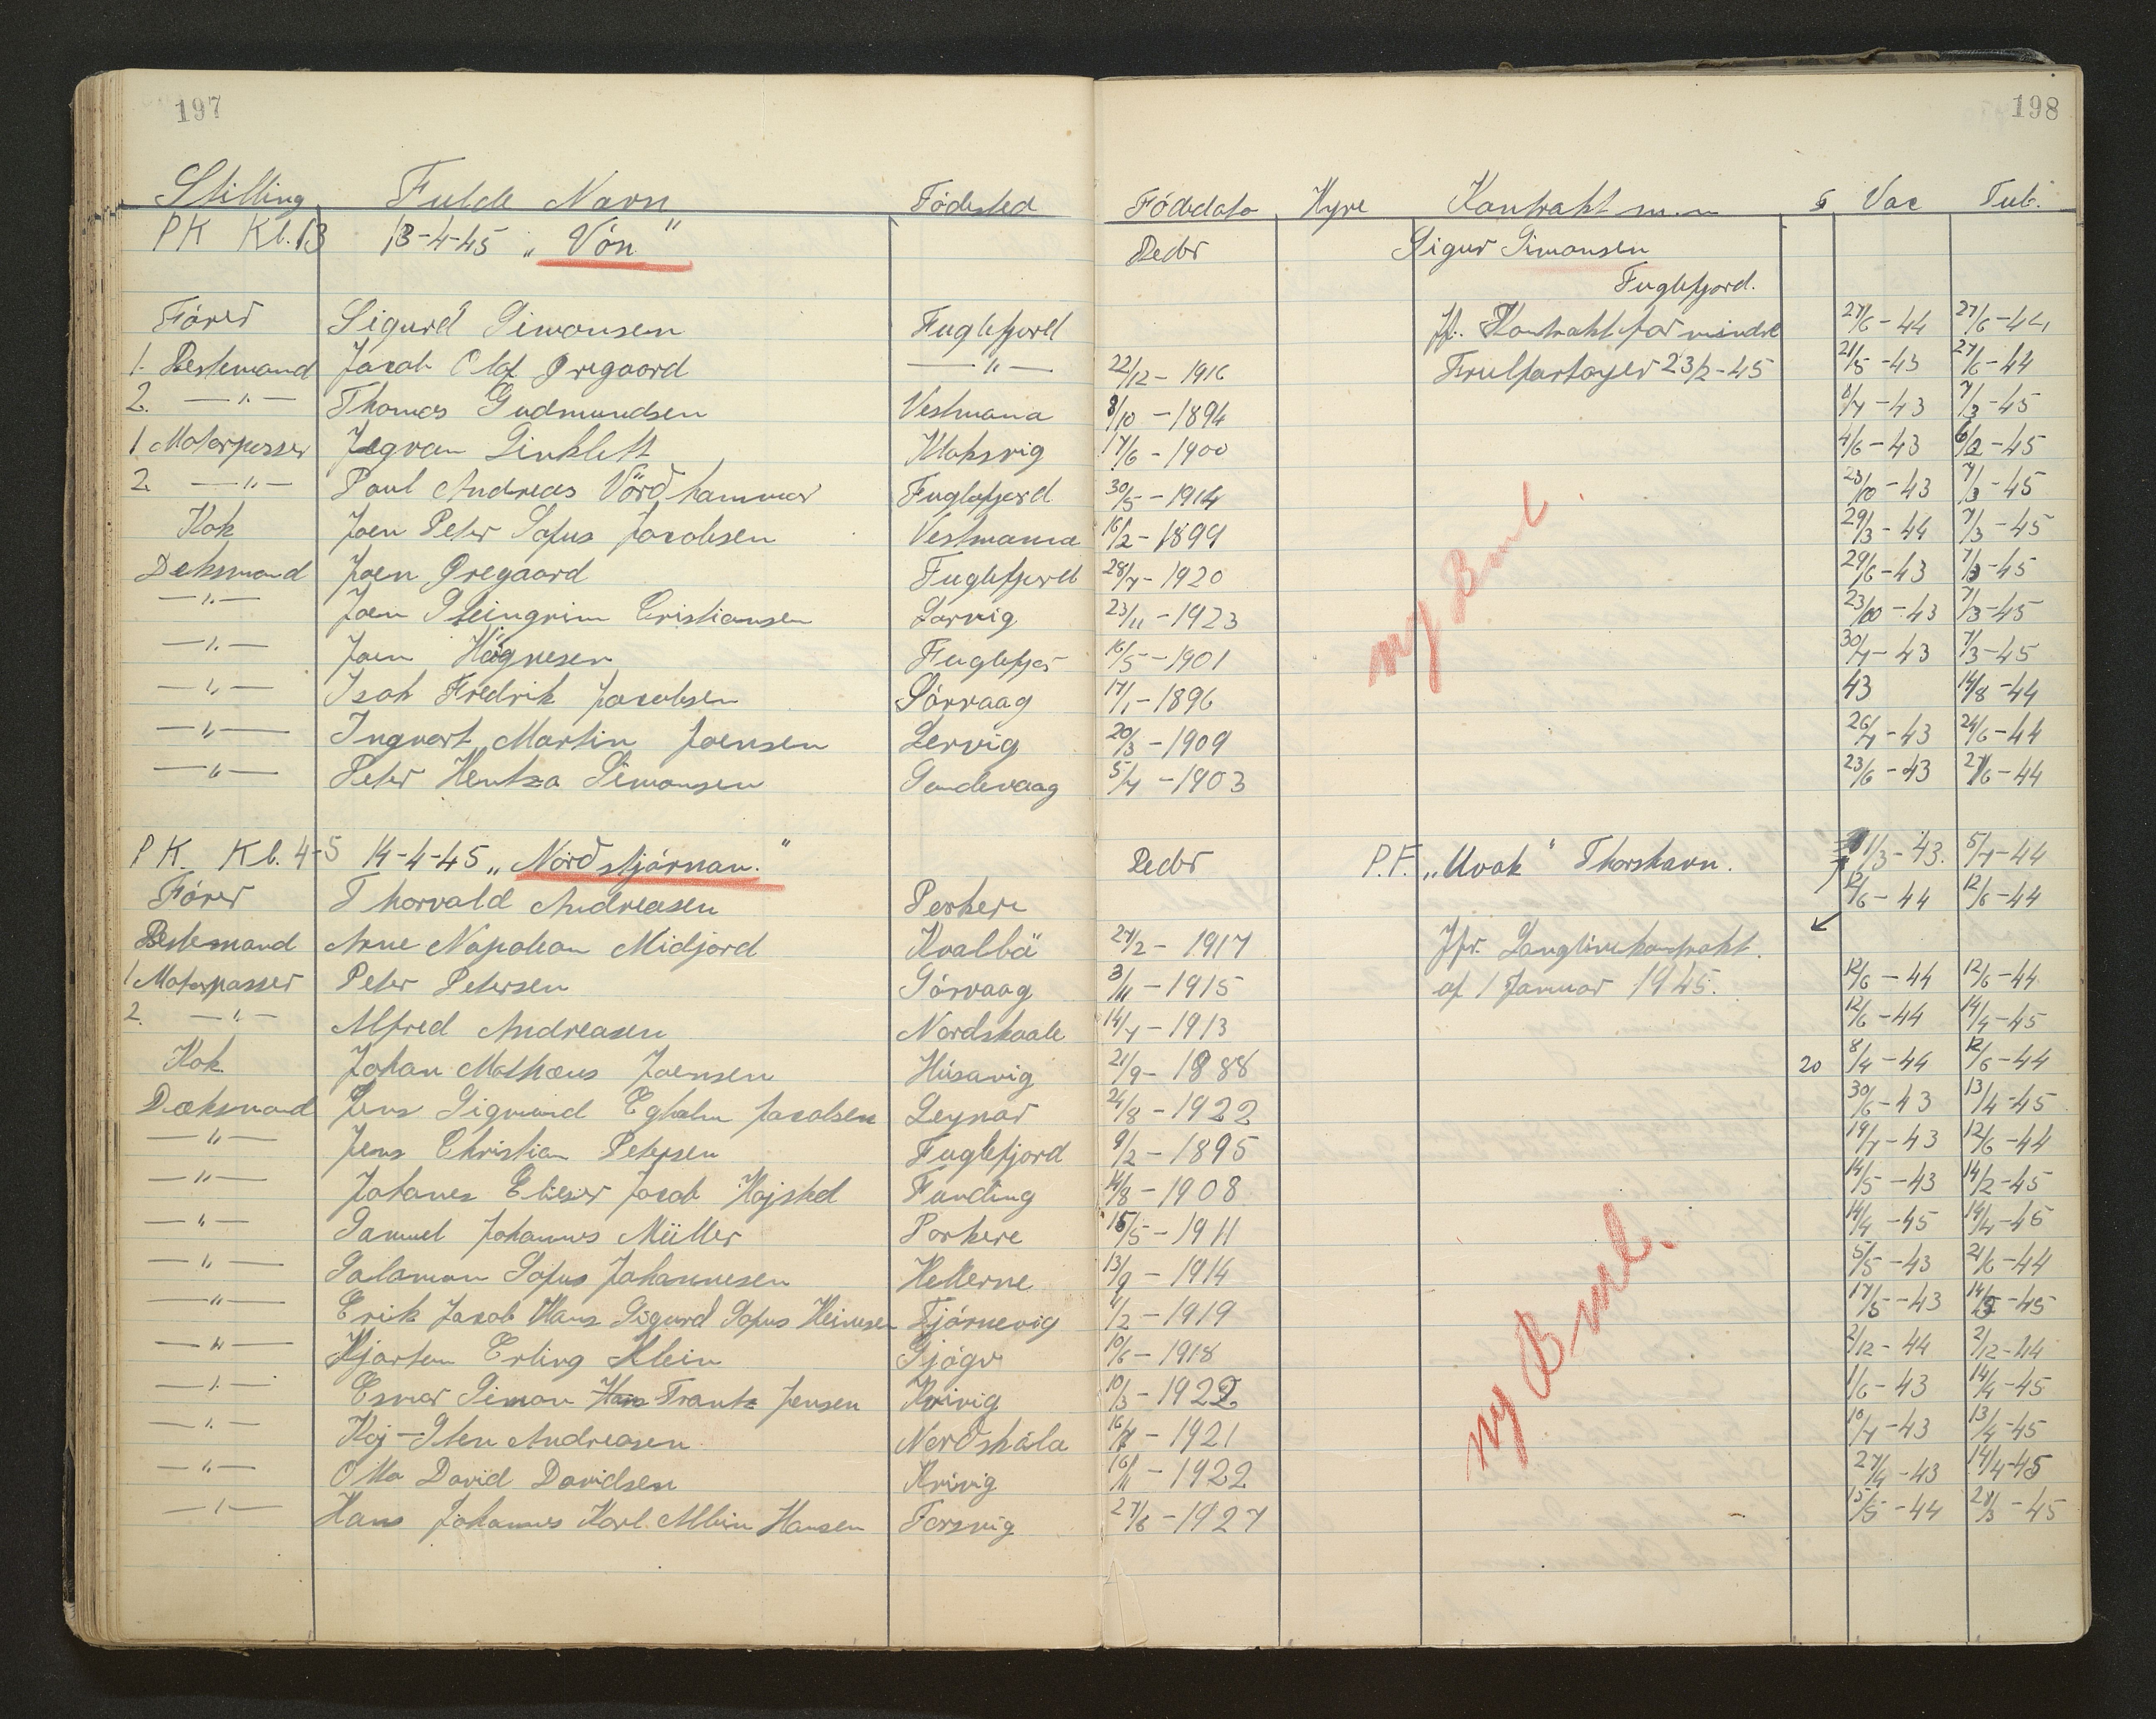 197
198
Stilling Fulde Navn Födested Födedato Hyre Kontrakt m.m S Vac Tub.
PK Kl. 13 13-4-45 „Vón" Reder Sigur Simonsen
Fuglefjord.
Förer Sigurd Simonsen Fuglefjord Jf. Kontrakt for mindre 27/6-44 27/6-44
1. Bestemand Jacob Olof Øregaard —"— 22/12-1916 23/2-45 21/5-43 27/6-44
2. —"— Thomas Gudmundsen Vestmana 8/10-1894 1/7-43 7/3-45
1 Motorpasser Jegvan Sinklett Klaksvig 17/6-1900 4/6-43 6/2-45
2. —"— Poul Andreas Vördhammar Fuglefjord 30/5-1914 23/10-43 7/3-45
Kok Joen Peter Sofus Jacobsen Vestmanna 16/2-1899 29/3-44 7/3-45
Deksmand Joen Øregaard Fuglefjord 28/7-1920 29/6-43 7/3-45
—"— Joen Steingrim Cristiansen Lorvig 23/11-1923 23/10-43 7/3-45
—"— Joen Högnesen Fuglefjo 16/5-1901 30/7-43 7/3-45
—"— Isak Fredrik Jacobsen Sörvaag 17/1-1896 43 14/8-44
—"— Ingvart Martin Joensen Lervig 20/3-1909 26/7-43 24/6-44
—"— Peter Hentza Simonsen Sandevaag 5/7-1903 23/6-43 27/6-44
ny Bml.
PK. Kl. 4-5 14-4-45 „Nördstjörnan." Reder P.F. „Uvak" Thorshavn. 11/3-43. 5/7-44
Förer Thorvald Andreasen Porkere 12/6-44 12/6-44
Bestemand Arne Napoleon Midjord Kvalbä 27/2-1917 Jfr. Langlinekontrakt.
1 Motorpasser Peter Petersen Sörvaag 3/11-1915 af 1 Januar 1945. 12/6-44 12/6-44
2. —"— Alfred Andreasen Nordskaale 14/7-1913 12/6-44 14/4-45
Kok Johan Mathæus Joensen Húsavig 21/9-1888 20 8/4-44 12/6-44
Dæksmand Jens Sigmund Egholm Jacobsen Leynar 24/8-1922 30/6-43 13/4-45
—"— Jens Christian Petersen Fuglefjord 9/2-1895 19/7-43 12/6-44
—"— Johanes Elieser Jacob Højsted Funding 14/8-1908 14/5-43 14/2-45
—"— Samuel Johannes Müller Porkere 15/5-1911 14/4-45 14/4-45
—"— Salamon Sofus Johannesen Hellerne 13/9-1914 5/5-43 21/6-44
—"— Erik Jacob Hans Sigurd Sofus Heinesen Tjörnevig 4/2-1919 17/5-43 -45
—"— Kjartan Erling Klein Gjógv 10/6-1918 2/12-44 2/12-44
—"— Esmar Simon Hans Frantz Jensen Kvivig 10/3-1922 1/6-43 14/4-45
—"— Kaj-Sten Andreasen Nordskála 16/7-1921 10/7-43 13/4-45
—"— Otto David Davidsen Kvivig 16/11-1922 27/4-43 14/4-45
—"— Hans Johannes Karl Albin Hansen Forsvig 27/6-1927 15/5-44 28/3-45
ny Bml.